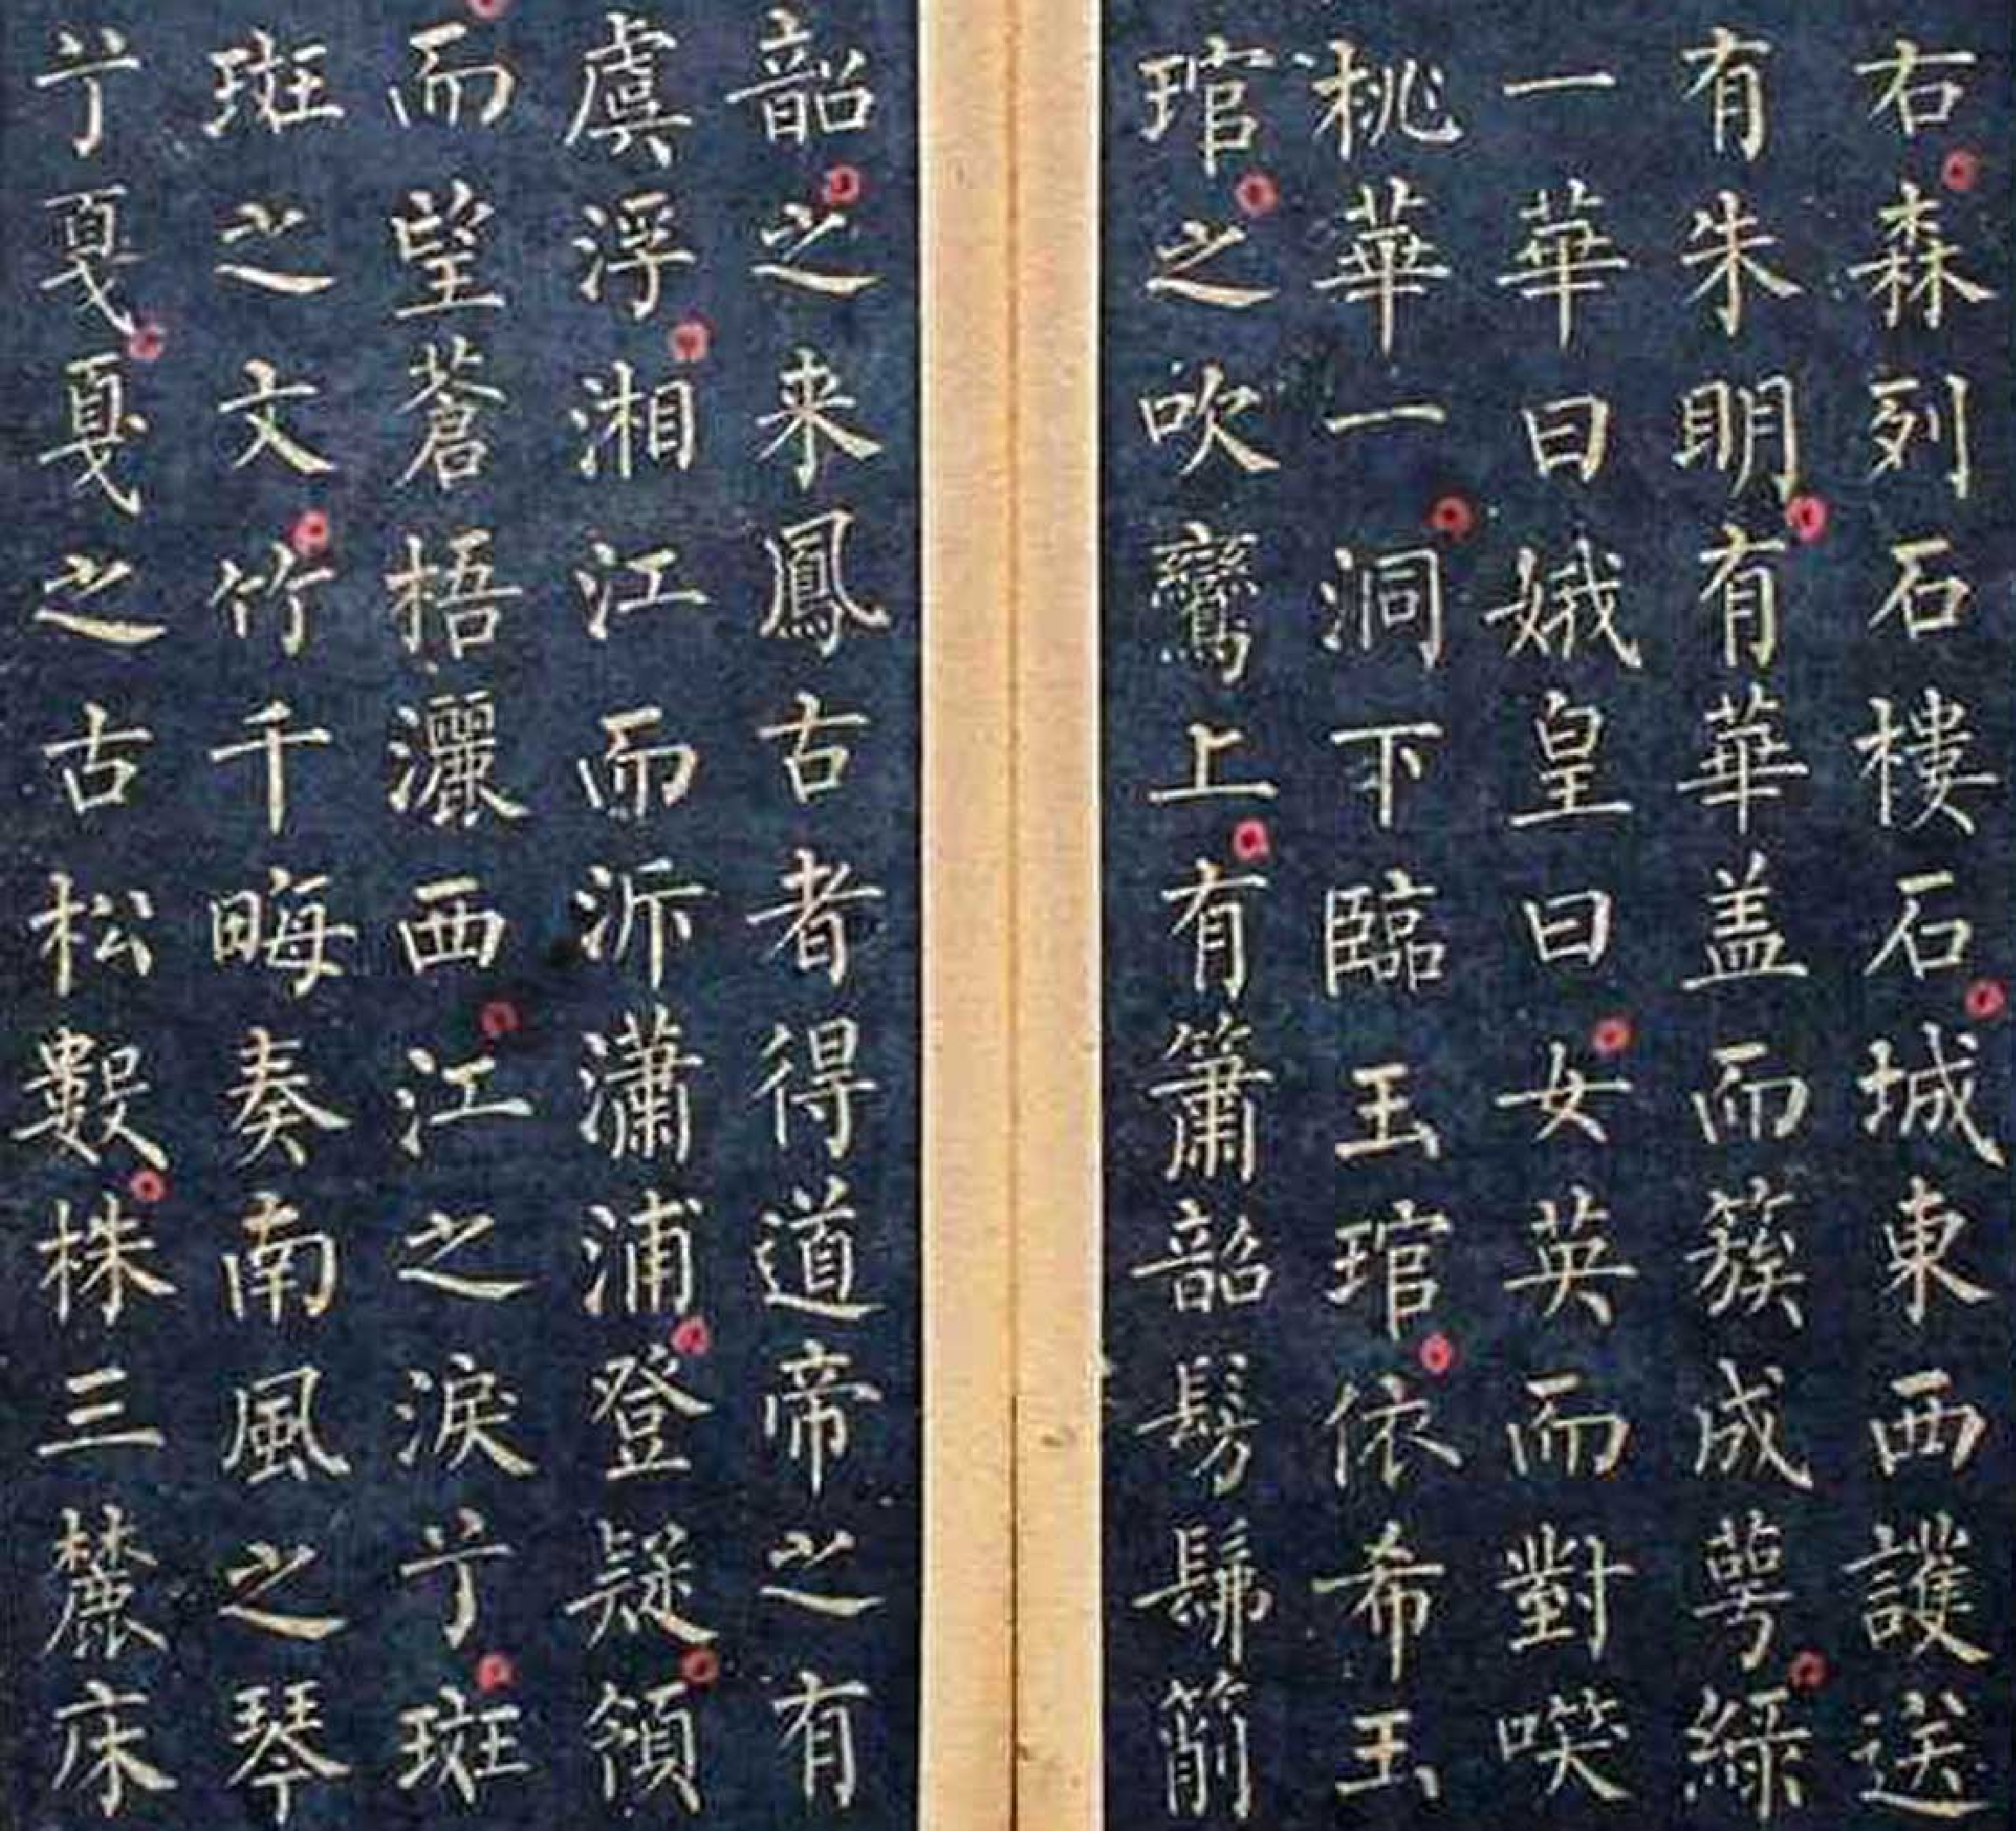 右森列石樓石城東西護送
有朱明有華盖而簇成萼綠
一華曰娥皇曰女英而對𡁏
桃華一洞下臨玉琯依希玉
琯之吹鸞上有簫韶髣髴箾
韶之来鳳古者得道帝之有
虞浮湘江而泝瀟浦登疑領
而望蒼梧灑西江之淚亍斑
斑之文竹千畮奏南風之琴
亍戛戛之古松數株三麓床